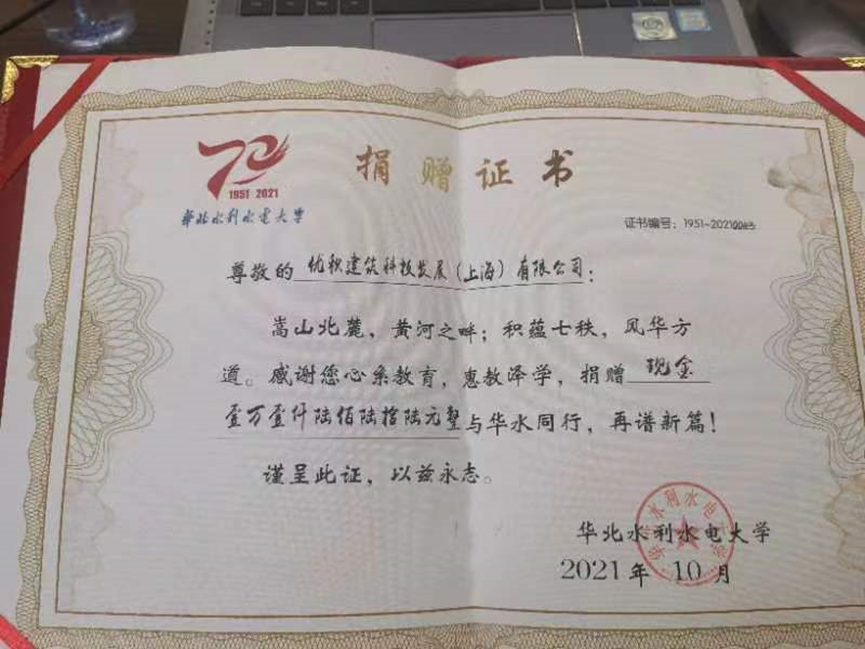 70
1951 2021
华北水利水电大学
捐赠证书
证书编号：1951-20210083
尊敬的 优积建筑科技发展（上海）有限公司：
嵩山北麓，黄河之畔；积蕴七秩，风华方
道。感谢您心系教育，惠教泽学，捐赠 现金
壹万壹仟陆佰陆拾陆元整 与华水同行，再谱新篇！
谨呈此证，以兹永志。
华北水利水电大学
2021年 10月